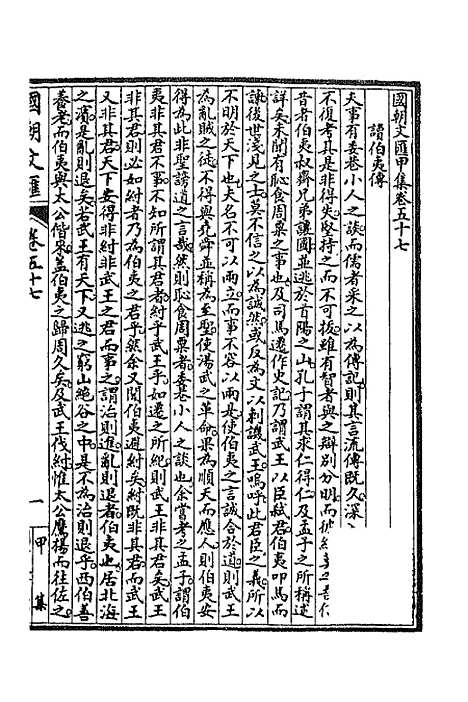 國朝文匯甲集卷五十七
讀伯夷傳
夫事有委巷小人之談而儒者采之以為傳記則其言流傳既久深入
不復考其是非得失堅持之而不可拔雖有智者與之辯別分明而彼
昔者伯夷叔齊兄弟讓國並逃於首陽之山孔子謂其求仁得仁及孟子之所稱述
詳矣未聞有恥食周粟之事也及司馬遷作史記乃謂武王以臣弒君伯夷叩馬而
諫後世淺見之士莫不信之以為誠然或反為文以刺譏武王嗚呼此君臣之義所以
不明於天下也夫名不可以兩立而事不容以兩是使伯夷之言誠合於道則武王
為亂賊之徒不得與堯舜並稱為至聖使湯武之革命果為順天而應人則伯夷安
得為此非聖謗道之言哉然則恥食周粟者委巷小人之談也余嘗考之孟子謂伯
夷非其君不事不知所謂其君者紂乎武王乎如遷之所紀則武王非其君矣武王
非其君則必如紂者乃為伯夷之君乎然余又聞伯夷避紂矣紂既非其君而武王
又非其君天下安得非紂非武王之君而事之謂治則進亂則退者伯夷也居北海
之濱是亂則退矣若武王有天下又逃之窮山絕谷之中是不為治則退乎西伯善
養老而伯夷與太公偕來蓋伯夷之歸周久矣及武王伐紂惟太公鷹揚而往佐之
國朝文匯
卷五十七
一
甲
集